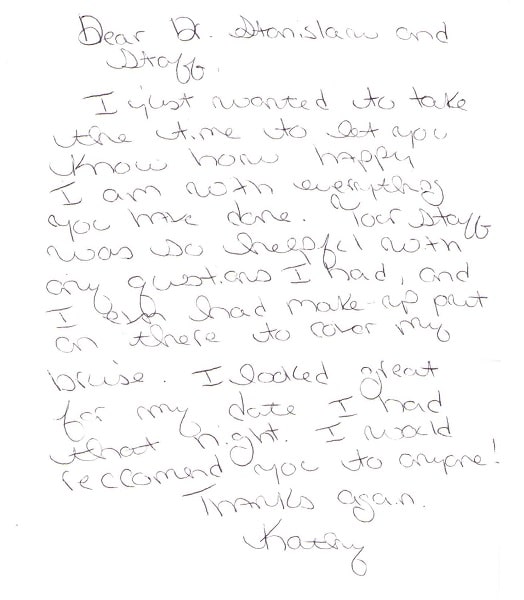 Dear Dr. Stanislaw and
Staff,
I just wanted to take
the time to let you
know how happy
I am with everything
you have done. Your staff
was so helpful with
any questions I had, and
I even had make-up put
on there to cover my
bruise. I looked great
for my date I had
that night. I would
reccomend you to anyone!
Thanks again.
Kathy